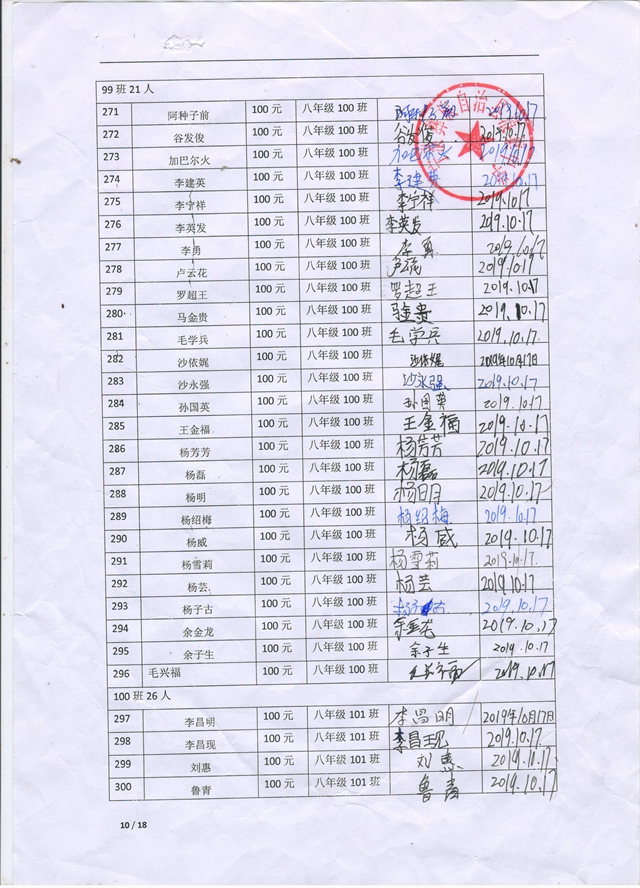 99 班 21 人
271 阿种子前 100 元 八年级 100 班 2019.10.17
272 谷发俊 100 元 八年级 100 班 谷发俊 2019.10.17
273 加巴尔火 100 元 八年级 100 班 加巴尔火 2019.10.17
274 李建英 100 元 八年级 100 班 李建英 2019.10.17
275 李宁祥 100 元 八年级 100 班 李宁祥 2019.10.17
276 李英发 100 元 八年级 100 班 李英发 2019.10.17
277 李勇 100 元 八年级 100 班 李勇 2019.10.17
278 卢云花 100 元 八年级 100 班 2019.10.17
279 罗超王 100 元 八年级 100 班 罗超王 2019.10.17
280 马金贵 100 元 八年级 100 班 2019.10.17
281 毛学兵 100 元 八年级 100 班 毛学兵 2019.10.17.
282 沙依娓 100 元 八年级 100 班 沙依娓 2019年10月17日
283 沙永强 100 元 八年级 100 班 沙永强 2019.10.17
284 孙国英 100 元 八年级 100 班 孙国英 2019.10.17
285 王金福 100 元 八年级 100 班 王金福 2019.10.17
286 杨芳芳 100 元 八年级 100 班 杨芳芳 2019.10.17
287 杨磊 100 元 八年级 100 班 杨磊 2019.10.17
288 杨明 100 元 八年级 100 班 杨明 2019.10.17
289 杨绍梅 100 元 八年级 100 班 杨绍梅 2019.10.17
290 杨威 100 元 八年级 100 班 杨威 2019.10.17
291 杨雪莉 100 元 八年级 100 班 杨雪莉 2019.10.17.
292 杨芸 100 元 八年级 100 班 杨芸 2019.10.17
293 杨子古 100 元 八年级 100 班 2019.10.17
294 余金龙 100 元 八年级 100 班 余金龙 2019.10.17
295 余子生 100 元 八年级 100 班 余子生 2019.10.17
296 毛兴福 100 元 八年级 100 班 2019.10.17
100 班 26 人
297 李昌明 100 元 八年级 101 班 李昌明 2019年10月17日
298 李昌现 100 元 八年级 101 班 李昌现 2019.10.17.
299 刘惠 100 元 八年级 101 班 刘惠 2019.10.17
300 鲁青 100 元 八年级 101 班 鲁青 2019.10.17
10 / 18